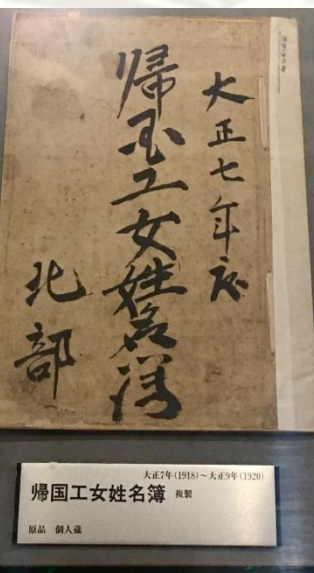 大正七年度
帰国工女姓名簿
北部
大正7年(1918)~大正9年(1920)
帰国工女姓名簿 複製
原品 個人蔵